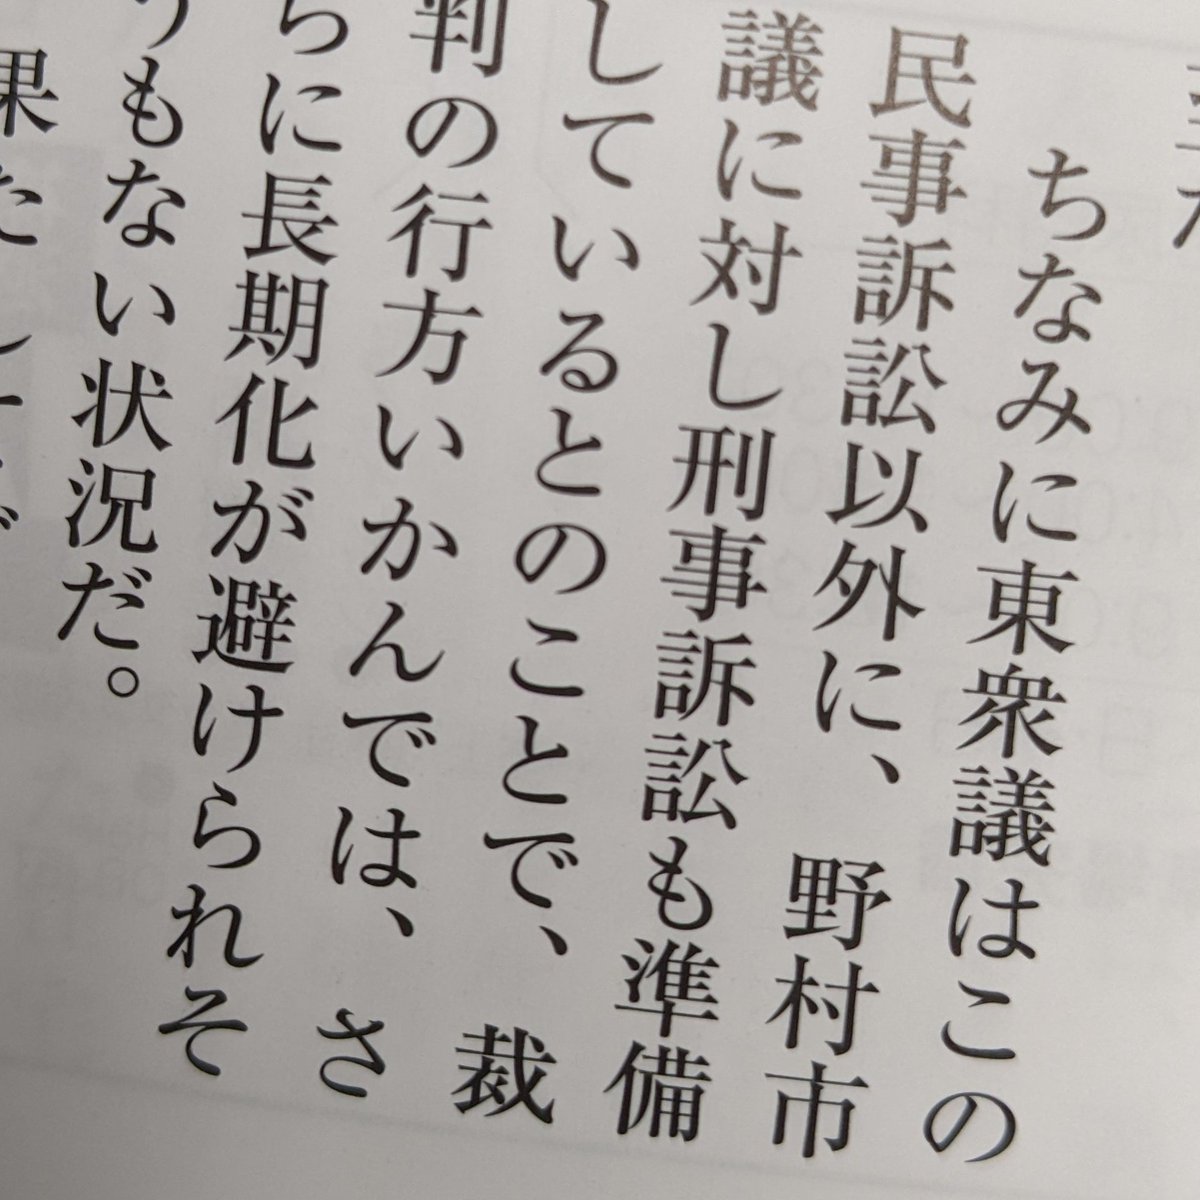 ちなみに東衆議はこの
民事訴訟以外に、野村市
議に対し刑事訴訟も準備
しているとのことで、裁
判の行方いかんでは、さ
らに長期化が避けられそ
うもない状況だ。
果たして